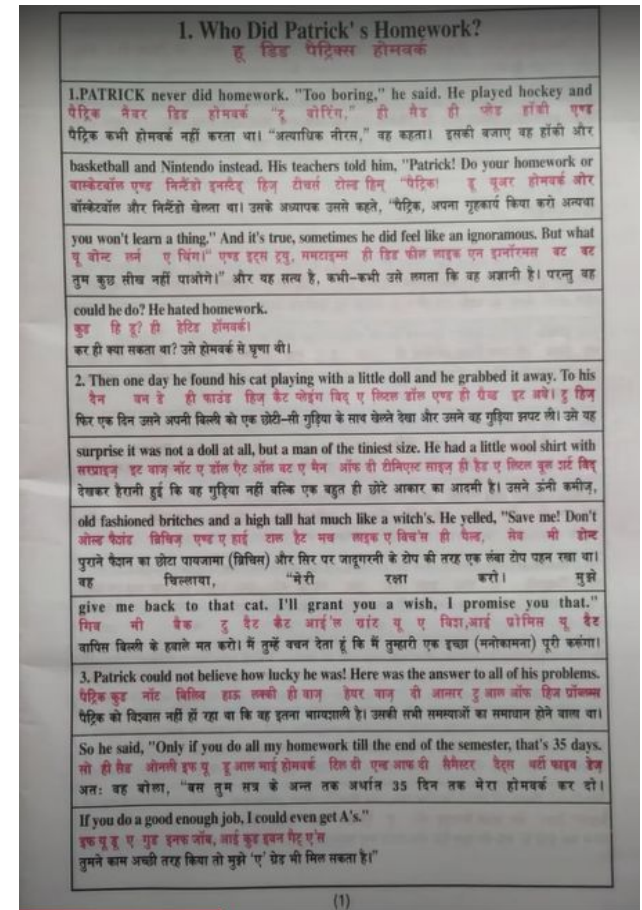 1. Who Did Patrick' s Homework?
हू डिड पैट्रिक्स होमवर्क
1.PATRICK never did homework. "Too boring," he said. He played hockey and
पैट्रिक नैवर डिड होमवर्क "टू बोरिंग," ही सैड ही प्लेड हॉकी एण्ड
पैट्रिक कभी होमवर्क नहीं करता था। "अत्याधिक नीरस," वह कहता। इसकी बजाए वह हॉकी और
basketball and Nintendo instead. His teachers told him, "Patrick! Do your homework or
बास्केटबॉल एण्ड निन्टैंडो इनस्टैड् हिज् टीचर्स टोल्ड हिम् "पैट्रिक! डू यूअर होमवर्क और
बॉस्केटबॉल और निन्टैंडो खेलता था। उसके अध्यापक उससे कहते, "पैट्रिक, अपना गृहकार्य किया करो अन्यथा
you won't learn a thing." And it's true, sometimes he did feel like an ignoramous. But what
यू वोन्ट लर्न ए थिंग।" एण्ड इट्स ट्रयु, समटाइम्स ही डिड फील लाइक एन इग्नॉरमस बट वट
तुम कुछ सीख नहीं पाओगे।" और यह सत्य है, कभी-कभी उसे लगता कि वह अज्ञानी है। परन्तु वह
could he do? He hated homework.
कुड हि डू? ही हेटिड होमवर्क।
कर ही क्या सकता था? उसे होमवर्क से घृणा थी।
2. Then one day he found his cat playing with a little doll and he grabbed it away. To his
दैन वन डे ही फाउंड हिज् कैट प्लेइंग विद् ए लिटल डॉल एण्ड ही ग्रैब्ड इट अवे। टु हिज्
फिर एक दिन उसने अपनी बिल्ली को एक छोटी-सी गुड़िया के साथ खेलते देखा और उसने वह गुड़िया झपट ली। उसे यह
surprise it was not a doll at all, but a man of the tiniest size. He had a little wool shirt with
सरप्राइज् इट वाज् नॉट ए डॉल ऐट ऑल बट ए मैन ऑफ दी टीनिएस्ट साइज् ही हैड ए लिटिल वूल शर्ट विद्
देखकर हैरानी हुई कि वह गुड़िया नहीं बल्कि एक बहुत ही छोटे आकार का आदमी है। उसने ऊंनी कमीज्,
old fashioned britches and a high tall hat much like a witch's. He yelled, "Save me! Don't
ओल्ड फैशंड ब्रिचिज् एण्ड ए हाई टाल हैट मच लाइक ए विच'स ही यैल्ड, सेव मी डोन्ट
पुराने फैशन का छोटा पायजामा (ब्रिचिस) और सिर पर जादूगरनी के टोप की तरह एक लंबा टोप पहन रखा था।
वह चिल्लाया, "मेरी रक्षा करो। मुझे
give me back to that cat. I'll grant you a wish, I promise you that."
गिव मी बैक टु दैट कैट आई'ल ग्रांट यू ए विश,आई प्रोमिस यू दैट
वापिस बिल्ली के हवाले मत करो। मैं तुम्हें वचन देता हूं कि मैं तुम्हारी एक इच्छा (मनोकामना) पूरी करूंगा।
3. Patrick could not believe how lucky he was! Here was the answer to all of his problems.
पैट्रिक कुड नॉट बिलिव हाऊ लक्की ही वाज् हेयर वाज् दी आन्सर टु आल ऑफ हिज प्रॉब्लम्स
पैट्रिक को विश्वास नहीं हो रहा था कि वह इतना भाग्यशाली है। उसकी सभी समस्याओं का समाधान होने वाला था।
So he said, "Only if you do all my homework till the end of the semester, that's 35 days.
सो ही सैड ओनली इफ यू डू आल माई होमवर्क टिल दी एन्ड आफ दी सैमैस्टर दैट्स थर्टी फाइव डेज्
अतः वह बोला, "बस तुम सत्र के अन्त तक अर्थात 35 दिन तक मेरा होमवर्क कर दो।
If you do a good enough job, I could even get A's."
इफ यू डू ए गुड इनफ जॉब, आई कुड इवन गैट् ए'स
तुमने काम अच्छी तरह किया तो मुझे 'ए' ग्रेड भी मिल सकता है।"
(1)